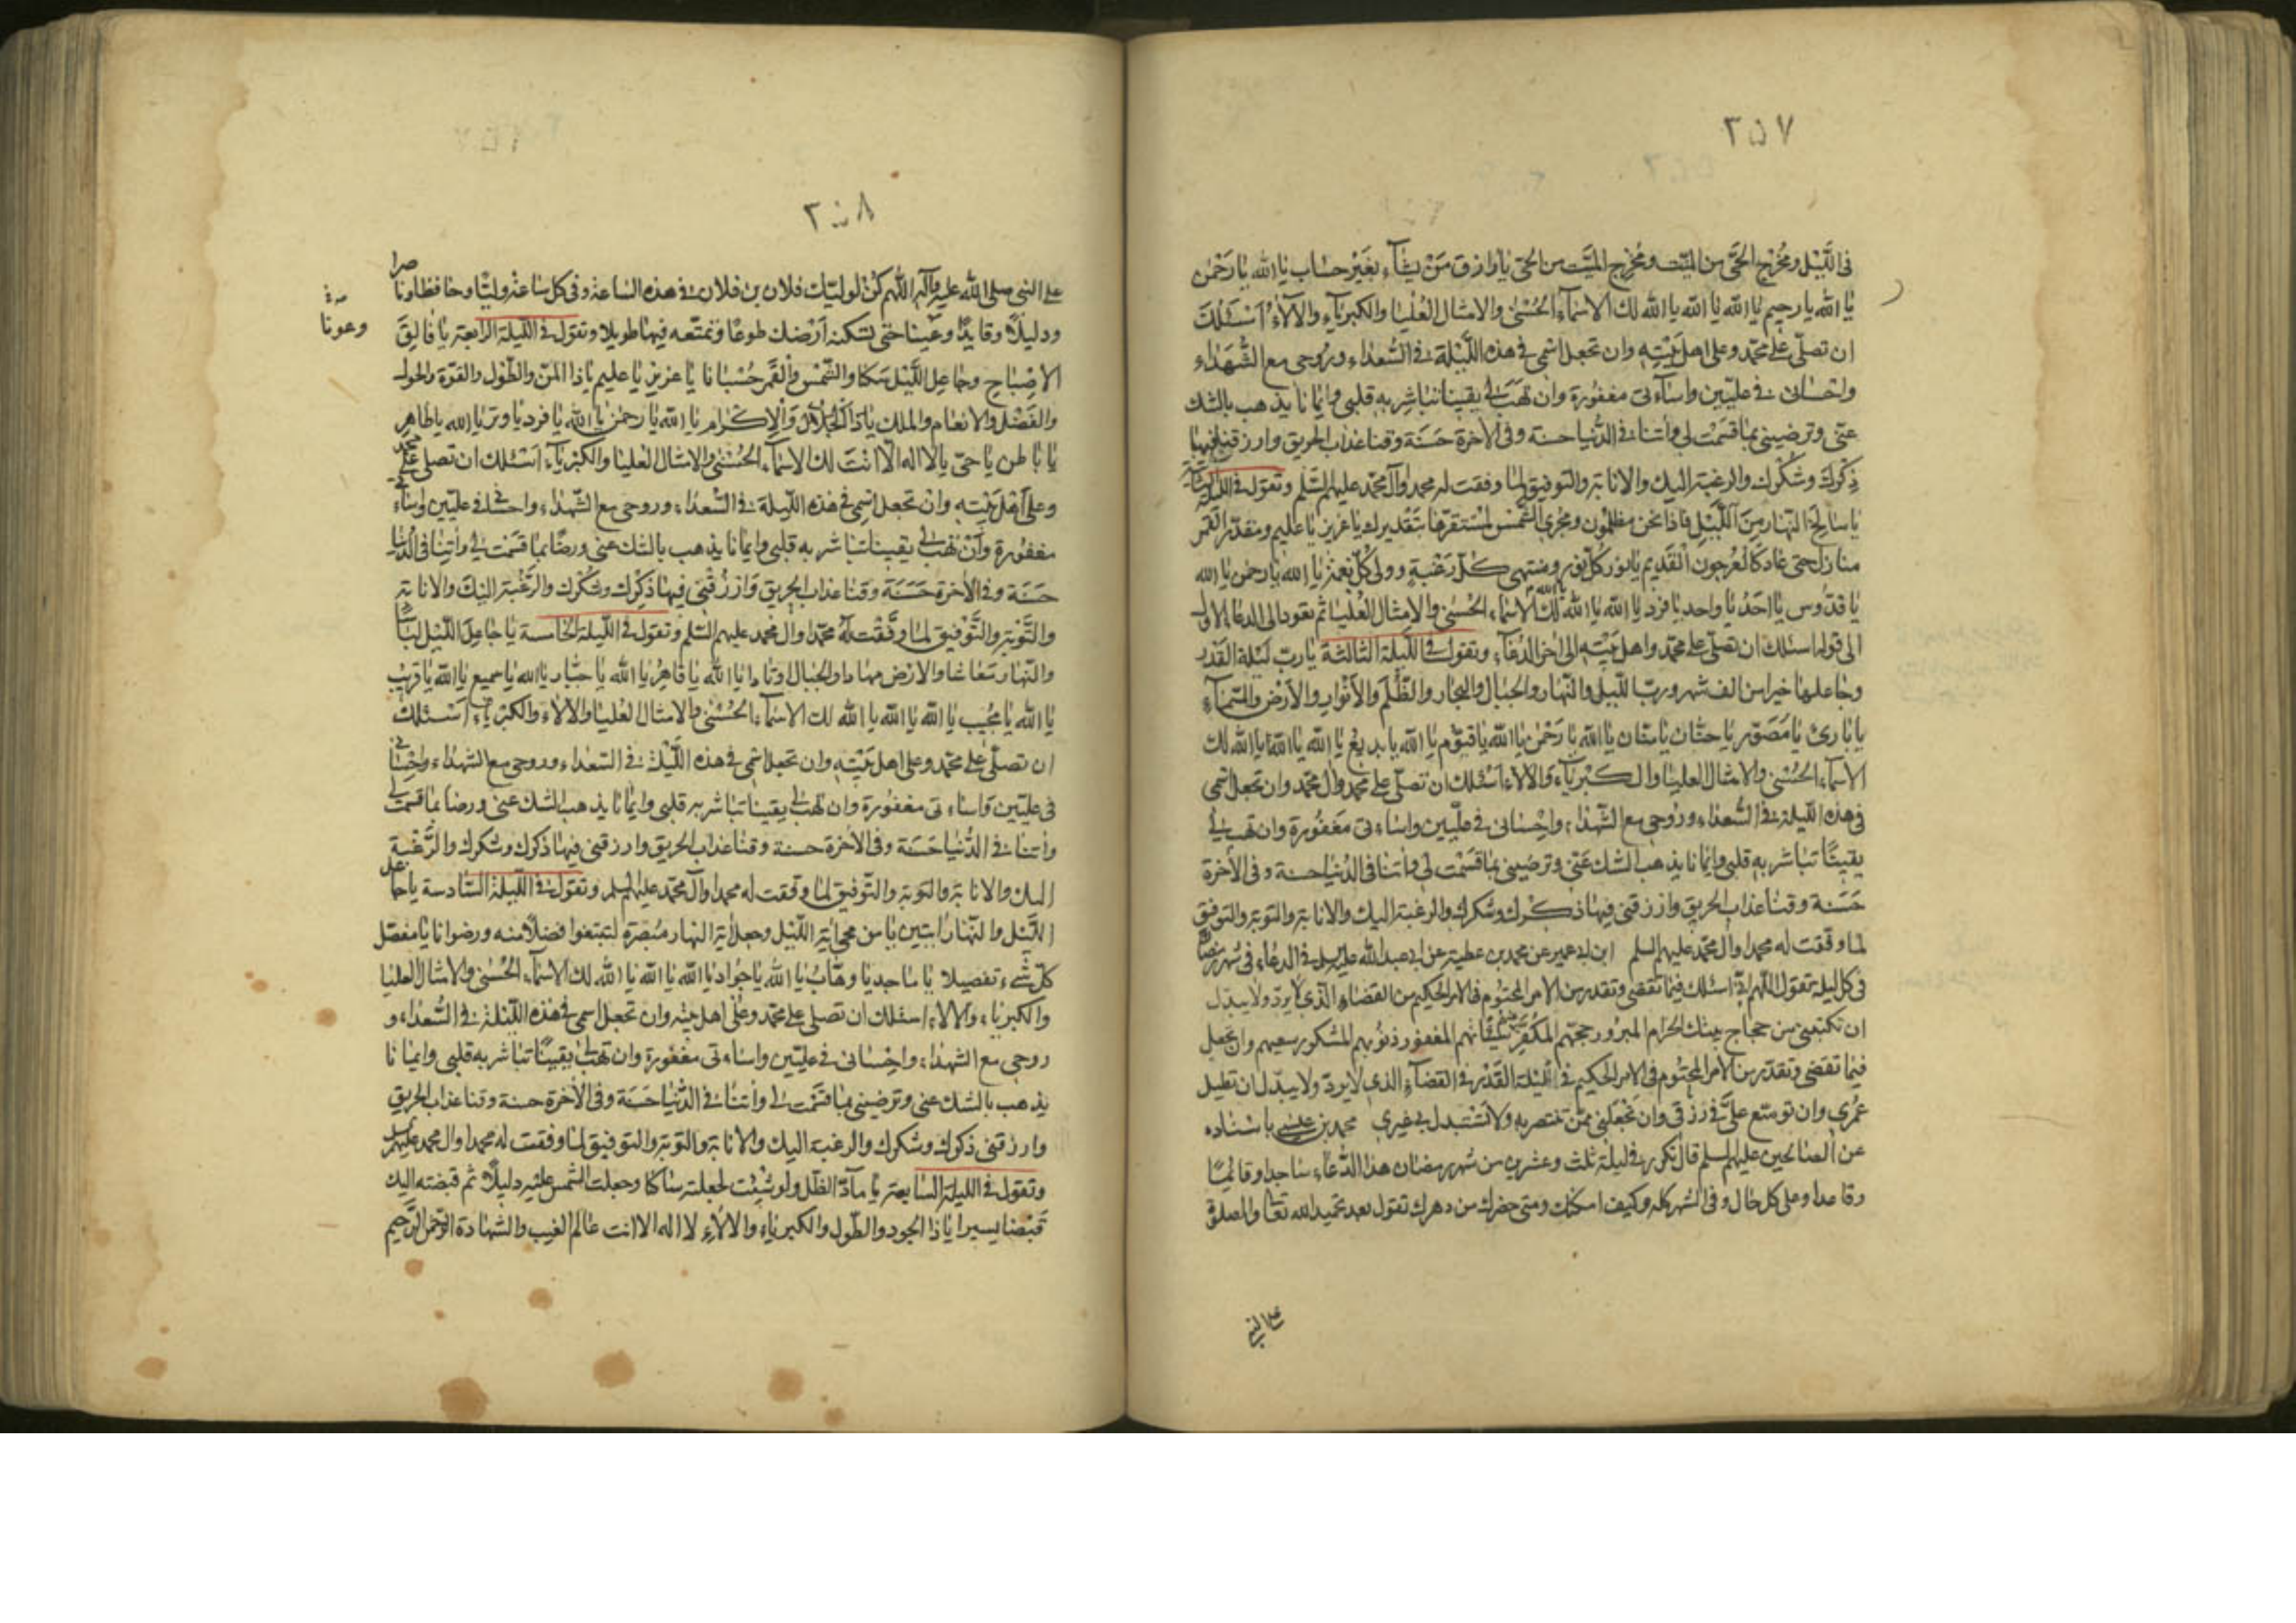 ٢٥٧
فى اللَّيْل ومُخْرِج الحَىّ من الميّت ومُخْرِج الميَّت من الحىّ يا رازق مَنْ يشآء بغَيْر حساب يا الله يا رَحْمٰن
يا الله يا رحيم يا الله يا الله يا الله لك الاسمآء الحُسْنى والامثال العُلْيا والكبريآء والآلآء اَسْئَلُكَ
ان تصلّى على محمّد وعلى اهل بَيْته وان تجعل اسمى فى هذه اللَّيْلة فى السُّعدآء ورُوحى مع الشُّهَدٰاء
واحسانى فى علّيّين واسآءتى مغفُورة وان تَهَبَ لى يقينا تباشِر به قلبى وايمانا يذهب بالشك
عنّى وترضينى بما قسَمْت لى وآتنا فى الدُّنيا حسنة وفى الآخرة حَسَنَة وقنا عذاب الحريق وارزقنى فيها
ذِكْرَكَ وشُكْرك والرغبة اليك والانابة والتوفيق لما وفقت له محمد وآل محمّد عليهم السّلم وتقول فى الليلة الثانية
يا سالخ النّهار مِنَ اللَّيْلِ فاذا نحن مظلمُون ومجرى الشَّمْس لمُسْتقرّها بتَقْديرك يا عزيز يا عليم ومقدّر القمر
منازل حتى عاد كالعُرجون الْقَديم يا نور كلّ نور ومنتهى كلّ رَغْبَةٍ وولى كُلّ نِعْمَة يا الله يا رحمٰن يا الله
يا قدُّوس يا اَحَدُ يا واحد يا فرد يا الله يا الله يا الله لَكَ الاسمآء الحُسْنى والامثال العُليا ثم تعود الى الدعاء الاول
الى قوله اسئلك ان تصلّى على محمّد واهل بَيْته الى اخر الدُّعآء وتقول فى اللَّيلة الثالثة يا ربّ لَيْلة القَدْر
وجاعلها خيرا من الف شهر وربّ اللَّيْل والنّهار والجبال والبحار والظُّلَم والاَنْوار والاَرْض والسَّمآء
يا بارئ يا مُصَوّر يا حنّان يا منّان يا الله يا رَحْمٰن يا الله يا قيّوم يا الله يا بديع يا الله يا الله يا الله لك
الاسمآء الحُسْنى والامثال العليا والكبْريآء والآلاء اَسْئلك ان تصلّى على محمّد وآل محمّد وان تجعل اسمى
فى هذه اللّيلة فى السُّعدآء ورُوحى مع الشّهدآء واِحْسانى فى علّيين واساءتى مَغفُورة وان تهب لى
يقينًا تباشر به قلبى وايمانا يذهب الشك عَنّى وترضينى بما قسَمْت لى وآتنا فى الدُنيا حسنة وفى الآخرة
حَسَنة وقنا عذاب الحريق وارزقنى فيها ذكرك وشكرك والرغبة اليك والانابة والتوبة والتوفيق
لما وفقت له محمدا وال محمّد عليهم السلم ابن ابى عمير عن محمد بن عطية عن ابى عبد الله عليه السلم فى الدعآء فى شهر رمضان
فى كل ليلة تقول اللهم انّى اسئلك فيما تقضى وتقدر من الامر المحتُوم فى الامر الحكيم من القضاء الّذى لا يردّ ولا يبدّل
ان تكتبنى من حجاج بيتك الحرام المبرُور حجهم المكفر سيّئاتهم المغفور ذنوبهم المشكور سعيهم وان تجعل
فيما تقضى وتقدّر من الامر المحتُوم فى الامر الحكيم فى لَيْلة القَدْر فى القضآء الذى لا يردّ ولا يبدّل ان تطيل
عمُرى وان توسّع علىّ فى رزقى وان تَجْعَلنى ممّن تنتصر به ولا تَسْتبدل بى غيرى محمد بن عيسى باسناده
عن الصالحين عليهم السلم قال تكرر فى ليلة ثلث وعشرين من شهر رمضان هذا الدُّعآء ساجدا وقائمًا
وقاعدا وعلى كل حال وفى الشهر كله وكيف امكنك ومتى حضرك من دهرك تقول بعد تحميد الله تعا والصلوة
على النبى
٢٥٨
على النبى صلى الله عليه وآله اللّٰهم كُنْ لوليّك فلان بن فلان فى هذه الساعة وفى كل ساعة وليًّا وحافظا ونا
صرا
وعونا
ودليلاً وقايدًا وعَيْنا حتى تسكنه اَرْضك طوعًا وتمتّعه فيها طويلا وتقول فى اللّيلة الرابعة يا فالِقَ
الاِصْباح وجاعِل اللَّيْل سكنا والشّمس والقَمَر حُسْبانا يا عزيز يا عليم يا ذا المنّ والطّول والقوّة والحول
والفَضْل والانعام والملك يا ذَا الجَلال وَالاِكرام يا الله يا رحمٰن يا الله يا فرد يا وتر يا الله يا ظاهر
يا باطن يا حىّ يا لا اله الّا اَنْتَ لك الاسمآء الحُسْنى والامثال العليا والكبريآء اسئلك ان تصلى على محمد
وعلى اَهْل بَيْته وان تجعل اسْمِى فى هذه اللّيلة فى السُّعداء وروحى مع الشّهداء واحسانى فى علّيين واسآءتى
مغفورة وَاَنْ تهب لى يقينا تباشر به قلبى وايمانا يذهب بالشك عنى ورضًا بما قسَمْت لى وآتِنا فى الدُّنيا
حَسَنَة وفى الآخرة حَسَنَة وقنا عذاب الحريق وَارزُقْنى فيها ذكْرك وشكْرك والرَّغْبة اليْكَ والانابة
والتَّوْبة والتَّوْفيق لما وفَّقْت لَهُ محمّدا وال محمد عليهم السّلم وتقول فى اللّيلة الخامسة يا جاعِلَ اللّيْل لباسا
والنّهار معاشا والارْض مهادا والجبال اوتادا يا الله يا قاهِرُ يا الله يا جبّار يا الله يا سميع يا الله يا قريب
يا الله يا مجُيب يا الله يا الله يا الله لك الاسمآء الحُسْنى والامثال العليا والآلاء والكبريآء اَسْئلك
ان تصلّى على محمّد وعلى اهل بَيْته وان تجعل اسمى فى هذه اللَّيْلة فى السّعداء وروحى مع الشهداء واحْسانى
فى علّيّين واساءتى مغفُورة وان تهَب لى يقينا تباشر به قلبى وايمانا يذهب الشك عنى ورضا بما قسمت لى
وآتنا فى الدُّنيا حَسَنَة وفى الآخرة حسنة وقنا عذاب الحريق وارزقنى فيها ذكرك وشكرك والرَّغْبة
اليك والانابة والتوبة والتّوفيق لما وفّقت له محمدا وآل محمّد عليهم السلم وتقول فى اللَّيلة السّادسة يا جاعل
اللَّيْل والنّهار ايتين يا من محى اية اللّيْل وجعل اية النهار مُبْصِرة لتبتغوا فضلا منه ورضوانا يا مفصّل
كلّ شَىْء تفصيلا يا ماجد يا وهّابُ يا الله يا جَواد يا الله يا الله يا الله لك الاسمآء الحُسْنى والامثال العليا
والكبرياء والآلاء اسئلك ان تصلى على محمّد وعلى اهل بيته وان تجعل اسمى فى هذه اللَّيْلة فى السُّعداء و
روحى مع الشهداء واحْسانى فى علّيّين واساءتى مغفُورة وان تهب لى يقينًا تباشر به قلبى وايمانا
يذهب بالشك عنى وترضينى بما قسَمْت لى وآتنا فى الدّنيا حَسَنَة وفى الآخرة حسنة وقنا عذاب الحريق
وارزقنى ذكرك وشكرك والرغبة اليك والانابة والتوبة والتوفيق لما وفقت له محمدا وال محمد عليهم السلم
وتقول فى الليلة السابعة يا مآدّ الظلّ ولو شئت لجعلته ساكنا وجعلت الشّمس عليْه دليلاً ثم قبضته اليك
قَبْضا يسيرا يا ذا الجود والطّول والكبرياء والآلاء لا اله الا انت عالم الغيب والشهادة الرّحمن الرَّحيم